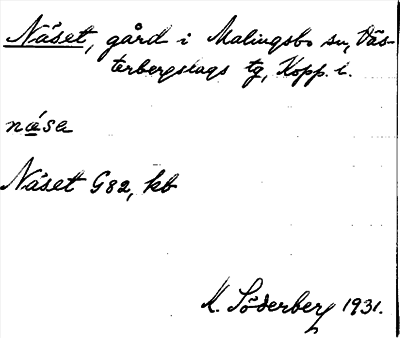 Näset, gård i Malingsbo sn, Väs-
terbergslags tg, Kopp. l.
næ´sa
Näset G82, kb
K. Söderberg 1931.